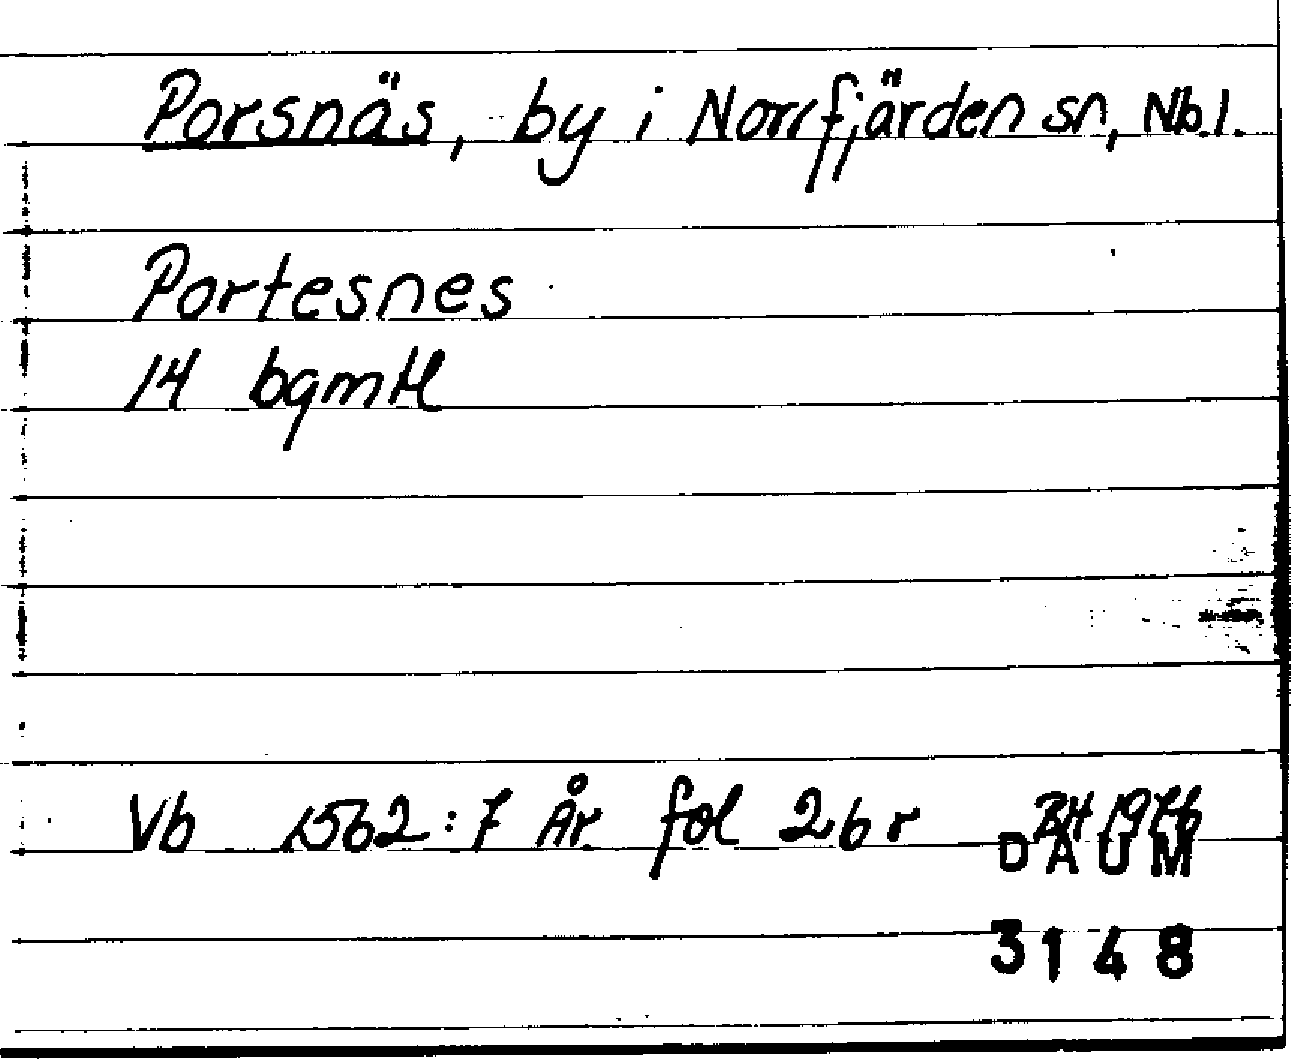 Porsnäs, by i Norrfjärden sn, Nb.l.
Portesnes
14 bqmtl
Vb 1562:7 År. fol 26 r BH 1976
DAUM
3148